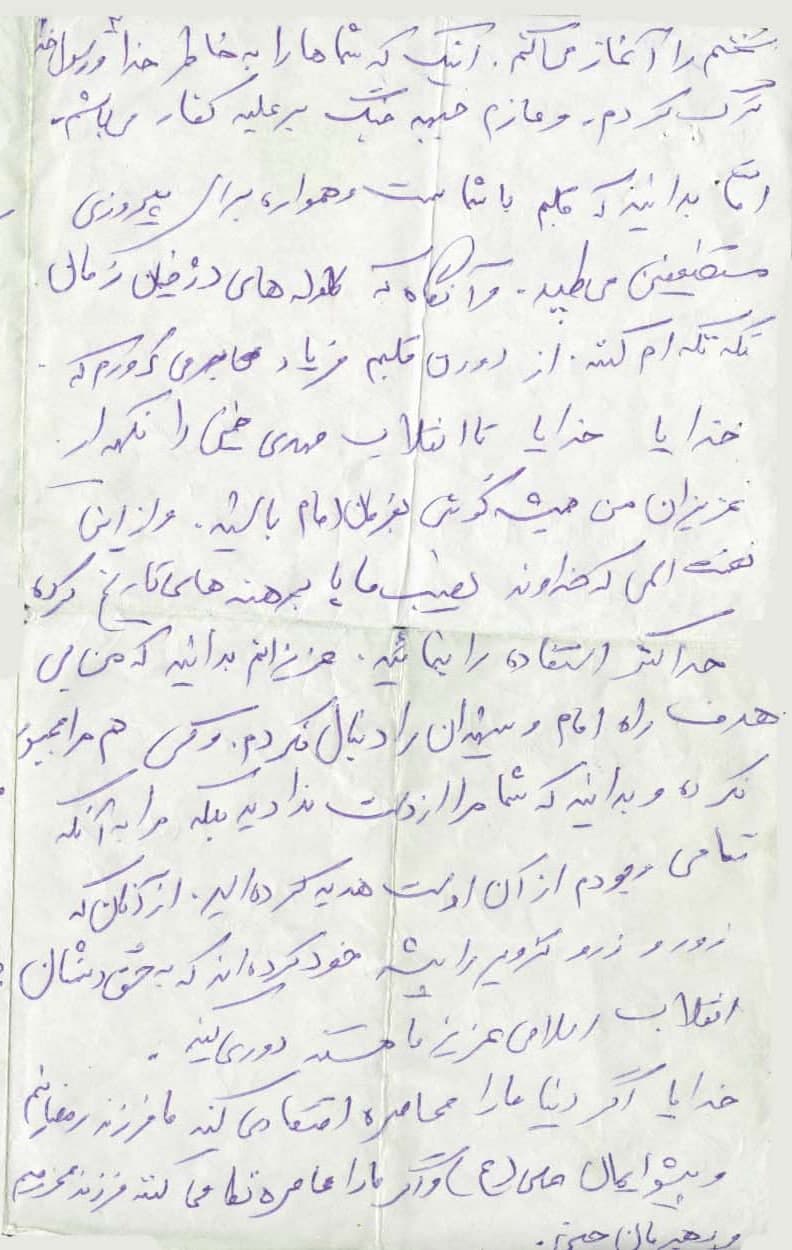 سخنم را آغاز می‌کنم. اینک که شماها را به خاطر خدا و رسول خدا
ترک کردم. و عازم جبهه جنگ بر علیه کفار می‌باشم.
اما بدانید که قلبم با شماست و همواره برای پیروزی
مستضعفین می‌طپد. و آنگاه که گلوله‌های دژخیمان زمان
تکه تکه‌ام کنند. از درون قلبم فریاد برمی‌آورم که
خدایا خدایا تا انقلاب مهدی خمینی را نگهدار.
عزیزان من همیشه گوش بفرمان امام باشید. و از این
نعمت الهی که خداوند نصیب ما پا برهنه‌های تاریخ کرده
حداکثر استفاده را بنمائید. عزیزانم بدانید که من بی
هدف راه امام و شهیدان را دنبال نکردم. و کسی هم مرا مجبور
نکرده و بدانید که شما مرا از دست ندادید بلکه مرا به آنکه
تمامی وجودم از آن اوست هدیه کرده‌اید. از آنان که
زور و زر و تزویر را پیشه خود کرده‌اند که به حق دشمنان
انقلاب اسلامی عزیز ما هستند دوری کنید.
خدایا اگر دنیا ما را محاصره اقتصادی کند ما فرزند رمضانیم
و پیشوایمان علی (ع) و اگر ما را محاصره نظامی کنند فرزند محرمیم
و رهبرمان حسین.